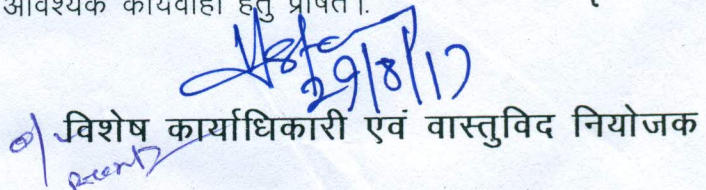 आवश्यक कार्यवाही हेतु प्रेषित।
29/8/17
विशेष कार्याधिकारी एवं वास्तुविद नियोजक